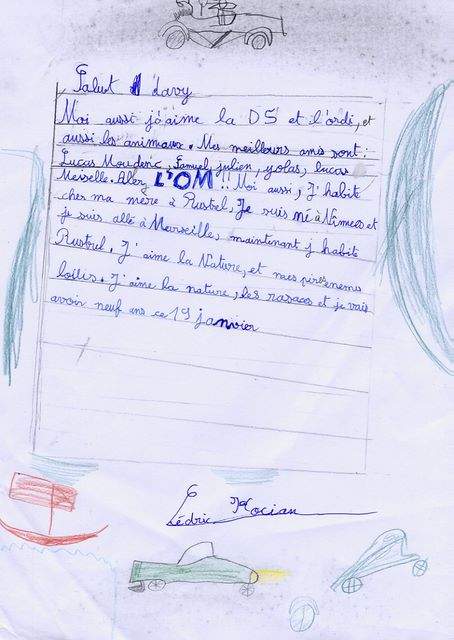 Salut Davy
Moi aussi j'aime la DS et l'ordi, et
aussi les animaux. Mes meilleurs amis sont:
Lucas Mouderic, Samuel, julien, yolas, lucas
Meiselle. Allez L'OM!! Moi aussi, J'habite
chez ma mère à Rustrel, Je suis né à Nimes et
je suis allé à Marseille, maintenant j habite
Rustrel. J'aime la Nature, et mes pires enemis
J'aime la nature, les rapaces et je vais
avoir neuf ans ce 19 janvier
Cédric Mocian